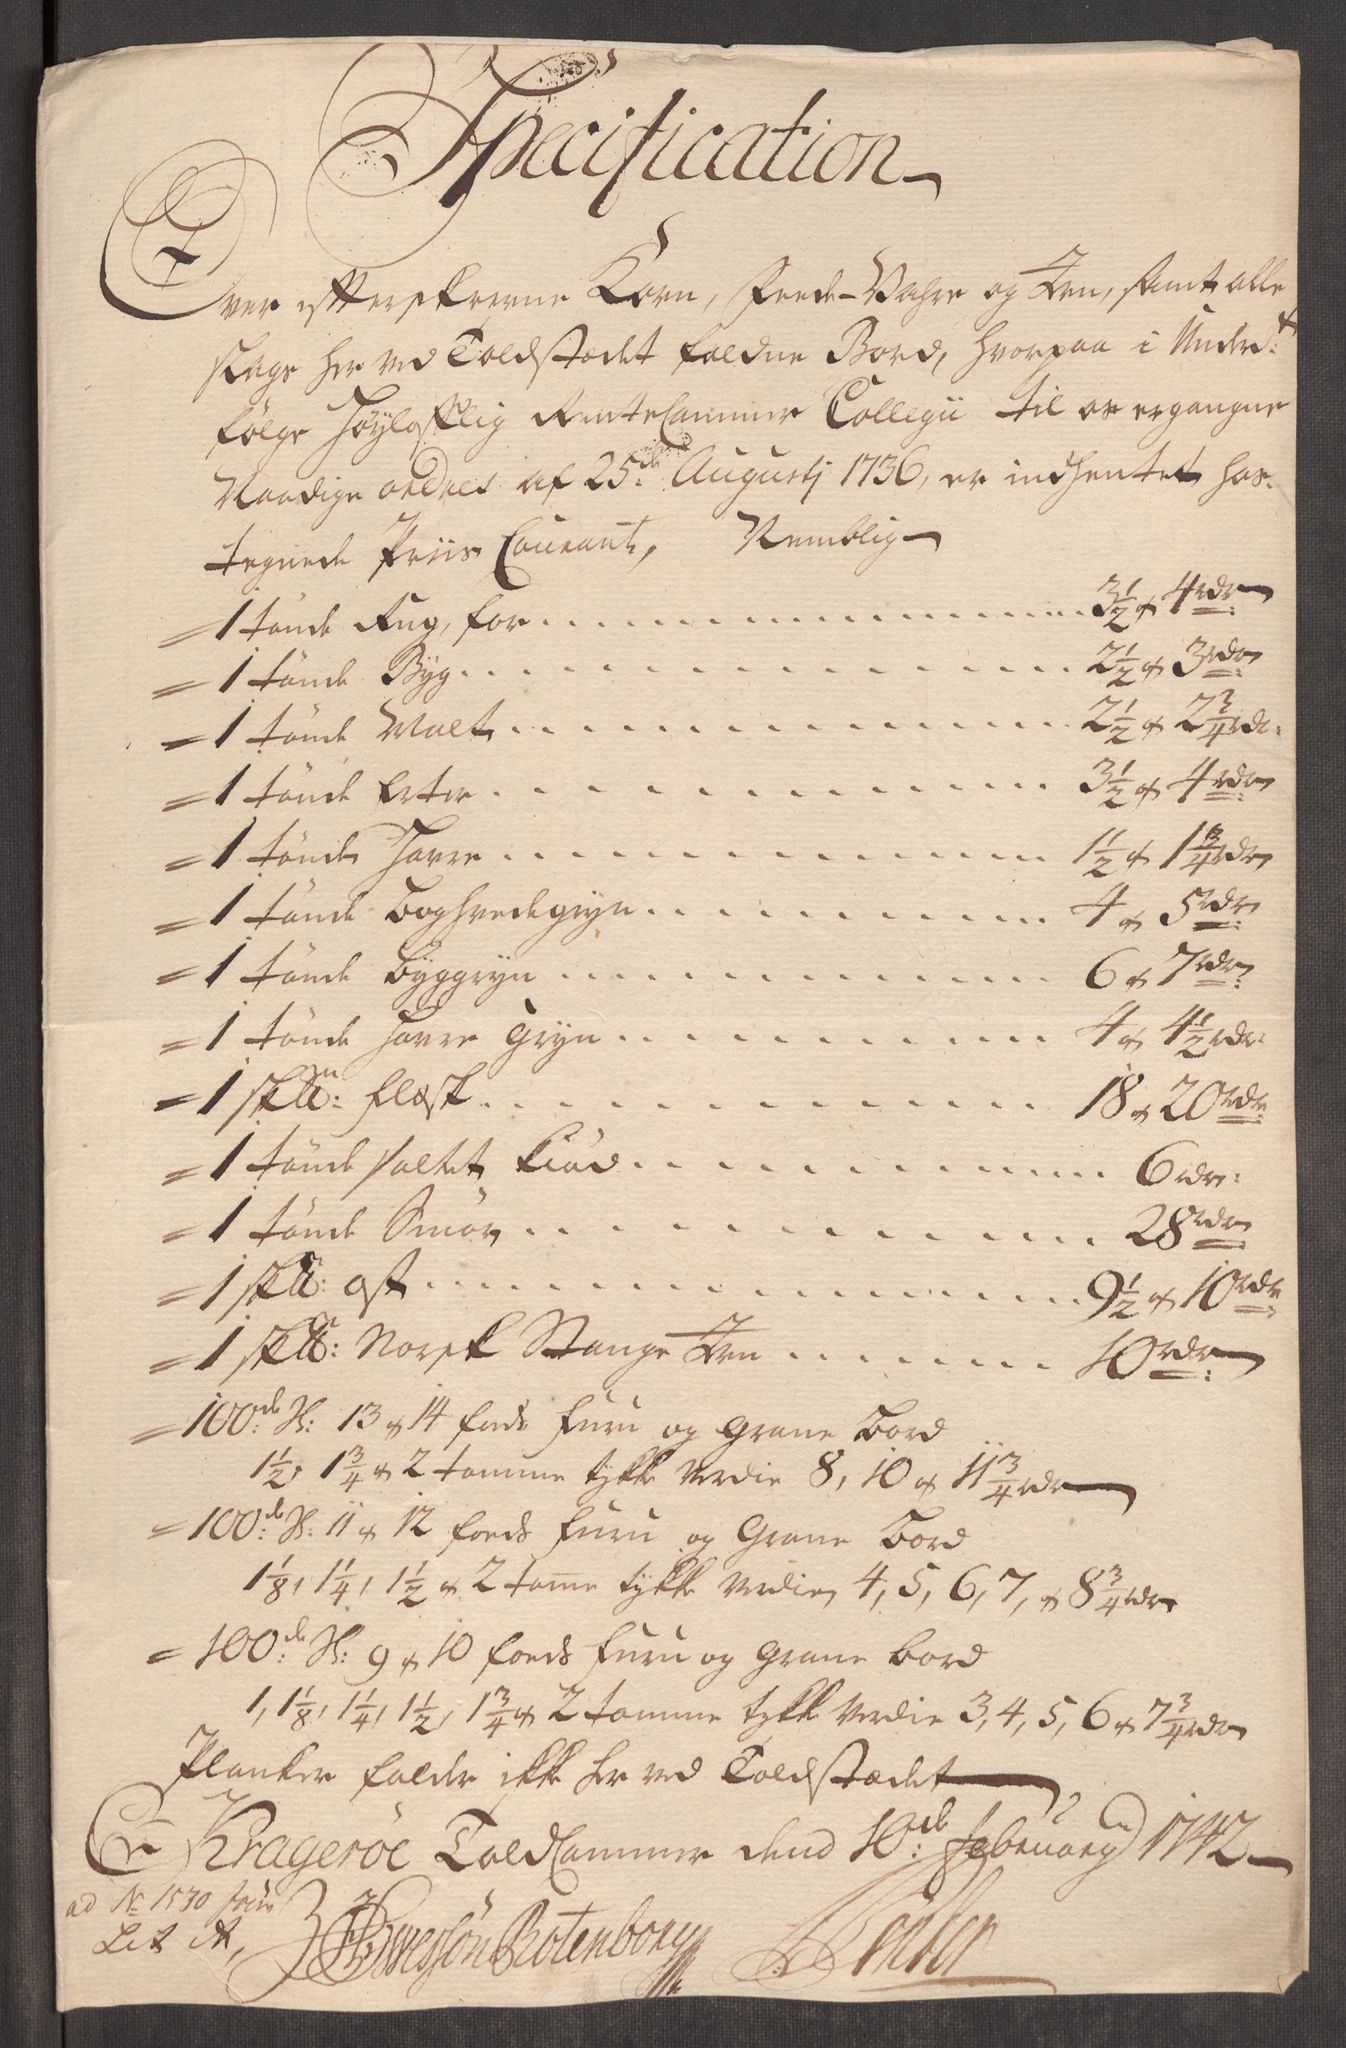 Specification
Over efterskrevne Korn, Feede-Vahre og Jern, samt alle
slags her ved Toldstædet faldne Bord, hvorpaa i Underd:t
følge Høyloflig RenteCammer Collegii til os ergangne
Naadige ordres af 25de Augustj 1736, er indhentet hos-
tegnede Priis Courant, Nemblig
= 1 tønde Rug, for . . . 3 1/2 á 4 rdr:
= 1 tønde Byg . . . 2 1/2 á 3 rdr
= 1 tønde Malt . . . 2 1/2 á 2 3/4 rdr:
= 1 tønde Erter . . . 3 1/2 á 4 rdr:
= 1 tønde Havre . . . 1 1/2 á 1 3/4 rdr
= 1 tønde Boghvedegryn . . . 4 á 5 rdr
= 1 tønde Byggryn . . . 6 á 7 rdr:
= 1 tønde Havre Gryn . . . 4 á 4 1/2 rdr:
= 1 sk℔: Flæsk . . . 18 á 20 rdr
= 1 tønde saltet Kiød . . . 6 rdr:
= 1 tønde Smør . . . 28 rdr
= 1 sk℔: ost . . . 9 1/2 á 10 rdr
= 1 sk℔: Norsk Stange Jern . . . 10 rdr:
= 100de St: 13 á 14 fods furu og grane Bord
1 1/2, 1 3/4 á 2 tomme tykke Verdie 8, 10 á 11 3/4 rdr
= 100de St: 11 á 12 foeds furu og Grane Bord
1 1/8, 1 1/4, 1 1/2 á 2 tome tykke Verdie 4, 5, 6, 7, á 8 3/4 rdr
= 100de St: 9 á 10 foeds furu og Grane bord
1, 1 1/8, 1 1/4, 1 1/2, 1 3/4 á 2 tomme tykk Verdie 3, 4, 5, 6 á 7 3/4 rdr
Planker falder ikke her ved Toldstædet
Kragerøe ToldCammer dend 10de February 1742
ad No 1530
Lit A,
Rotenborg